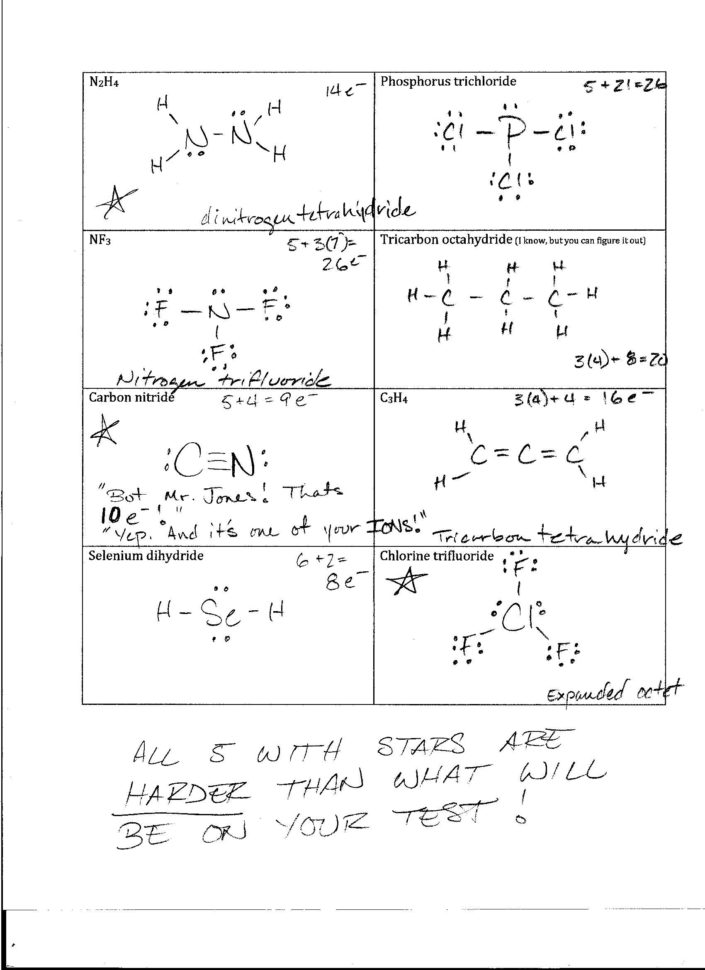 N2H4
14e-
H
H
N-N
H
H
dinitrogen tetrahydride
Phosphorus trichloride
5+21=26
Cl - P - Cl
Cl
NF3
5+3(7)=
26e-
F - N - F
F
Nitrogen trifluoride
Tricarbon octahydride (I know, but you can figure it out)
H H H
H-C - C - C-H
H H H
3(4)+8=20
Carbon nitride
5+4=9e-
:C≡N:
"But Mr. Jones! Thats
10e-!"
"Yep. And it's one of your IONS!"
C3H4
3(4)+4=16e-
H H
C=C=C
H H
Tricarbon tetrahydride
Selenium dihydride
6+2=
8e-
H-Se-H
Chlorine trifluoride
F
Cl
F F
Expanded octet
ALL 5 WITH STARS ARE
HARDER THAN WHAT WILL
BE ON YOUR TEST!